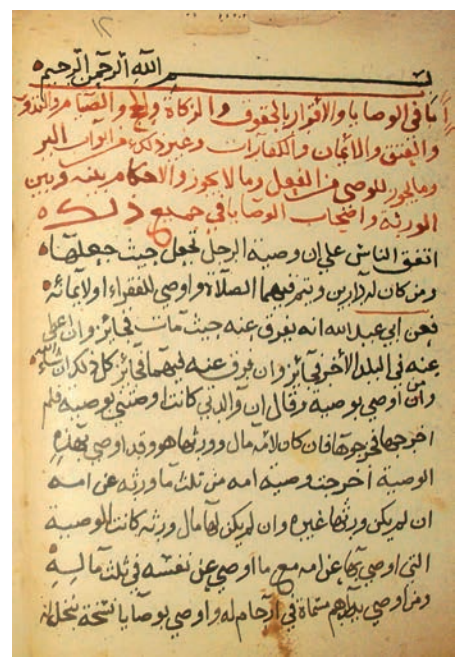 ١٢
بسم الله الرحمن الرحيم
اما في الوصايا والأقرار بالحقوق والزكاة والحج والصيام والنذور
والعتق والايمان والكفارات وغير ذلك من ابواب البر
وما يجوز للوصي من الفعل وما لا يجوز والاحكام بينه وبين
الورثة واصحاب الوصايا في جميع ذلك
اتفق الناس على ان وصية الرجل تجعل حيث جعلها
ومن كان له دارين ويتم فيهما الصلاة واوصى للفقراء اولايمانه
فعن ابي عبد الله انه يفرق عنه حيث مات في وان
عنه في البلد الأخر وان فرق عنه فيهما كل ذلك ان شاء الله
وان من اوصى بوصية وقال ان والدتي كانت اوصتني بوصية فلم
اخرجها فاخرجوها فان كان لامه مال وورثها هو وقد اوصى بهذه
الوصية اخرجت وصية امه من ثلث ما ورثه عن امه
ان لم يكن ورثها غيره وان لم يكن لها مال ورثه كانت الوصية
التي اوصى بها عن امه مع ما اوصى عن نفسه في ثلث ماله
ومن اوصى بدراهم مسماة في ارحام له واوصى بوصايا